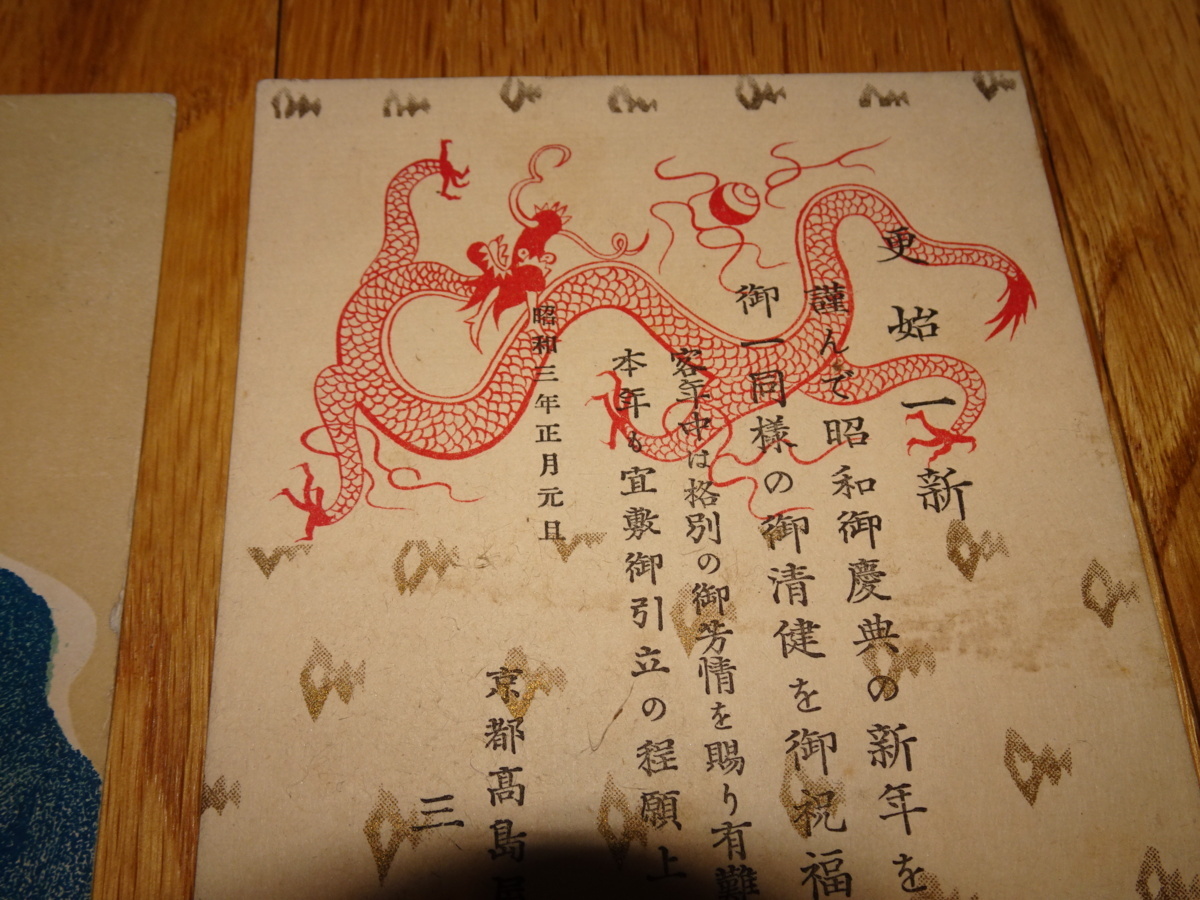 更始一新
謹んで昭和御慶典の新年を
御一同様の御清健を御祝福
客年中は格別の御芳情を賜り有難
本年も宜敷御引立の程願上
昭和三年正月元旦
京都高島屋
三